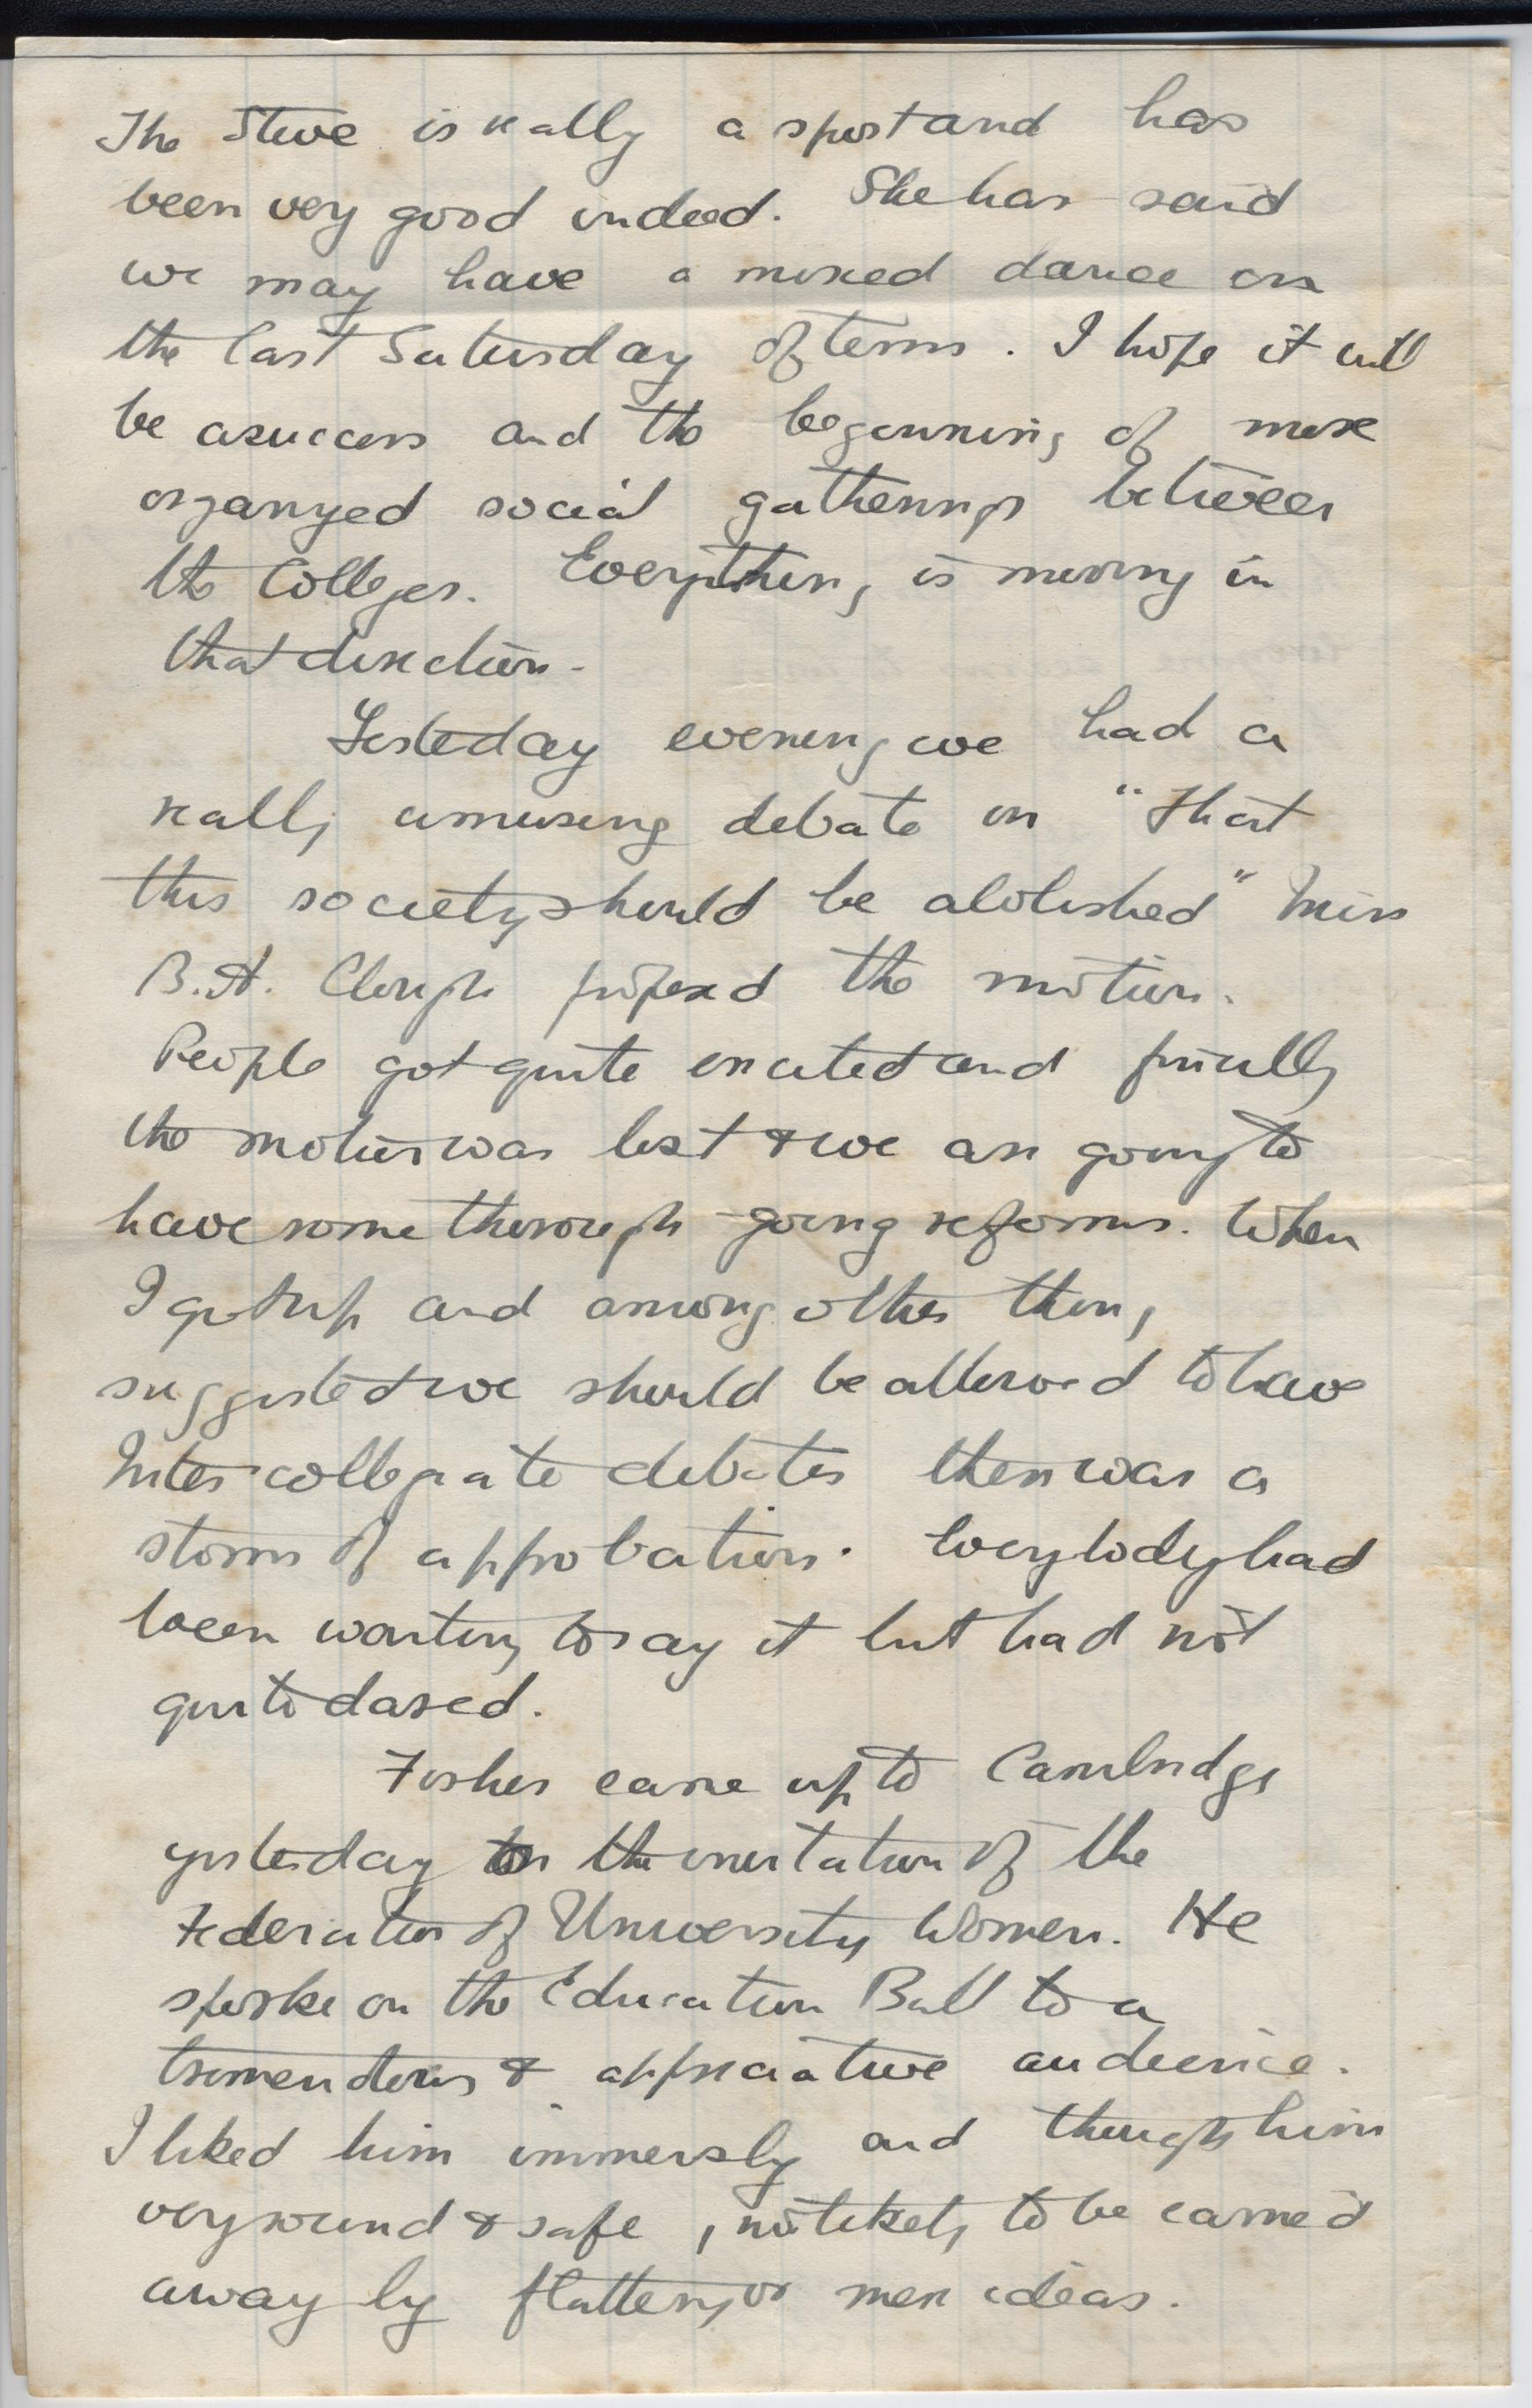 The Steve is really a sport and has
been very good indeed. She has said
we may have a mixed dance on
the last Saturday of term. I hope it will
be a success and the beginning of more
organyed social gatherings between
the Colleges. Everything is moving in
that direction.
Yesteday evening we had a
really amusing debate on "That
this society should be abolished" Miss
B.A. Clough proposed the motion.
People got quite excited and finally
the motion was lost & we are going to
have some thorough-going reforms. When
I got up and among other thing
suggested we should be allowed to have
Inter collegiate debates there was a
storm of approbation. Everybody had
been wanting to say it but had not
quite dared.
Fisher came up to Cambridge
yesterday on the invitation of the
Federation of University Women. He
spoke on the Education Bill to a
tremendous & appreciative audience.
I liked him immensly and though him
very sound & safe, not likely to be carried
away by flattery or mere ideas.